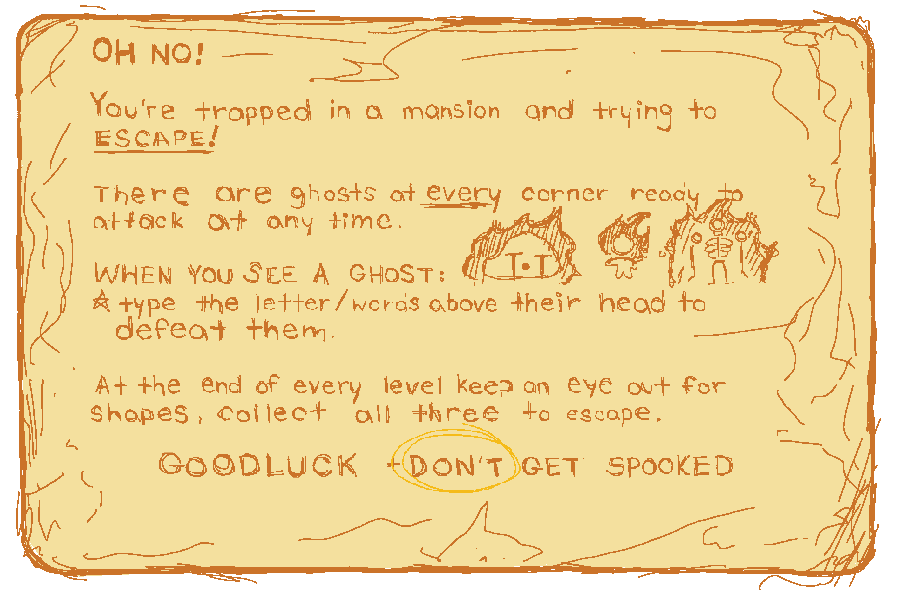 OH NO!
You're trapped in a mansion and trying to
ESCAPE!
There are ghosts at every corner ready to
attack at any time.
WHEN YOU SEE A GHOST:
☆ type the letter/words above their head to
defeat them.
At the end of every level keep an eye out for
shapes, collect all three to escape.
GOODLUCK + DON'T GET SPOOKED